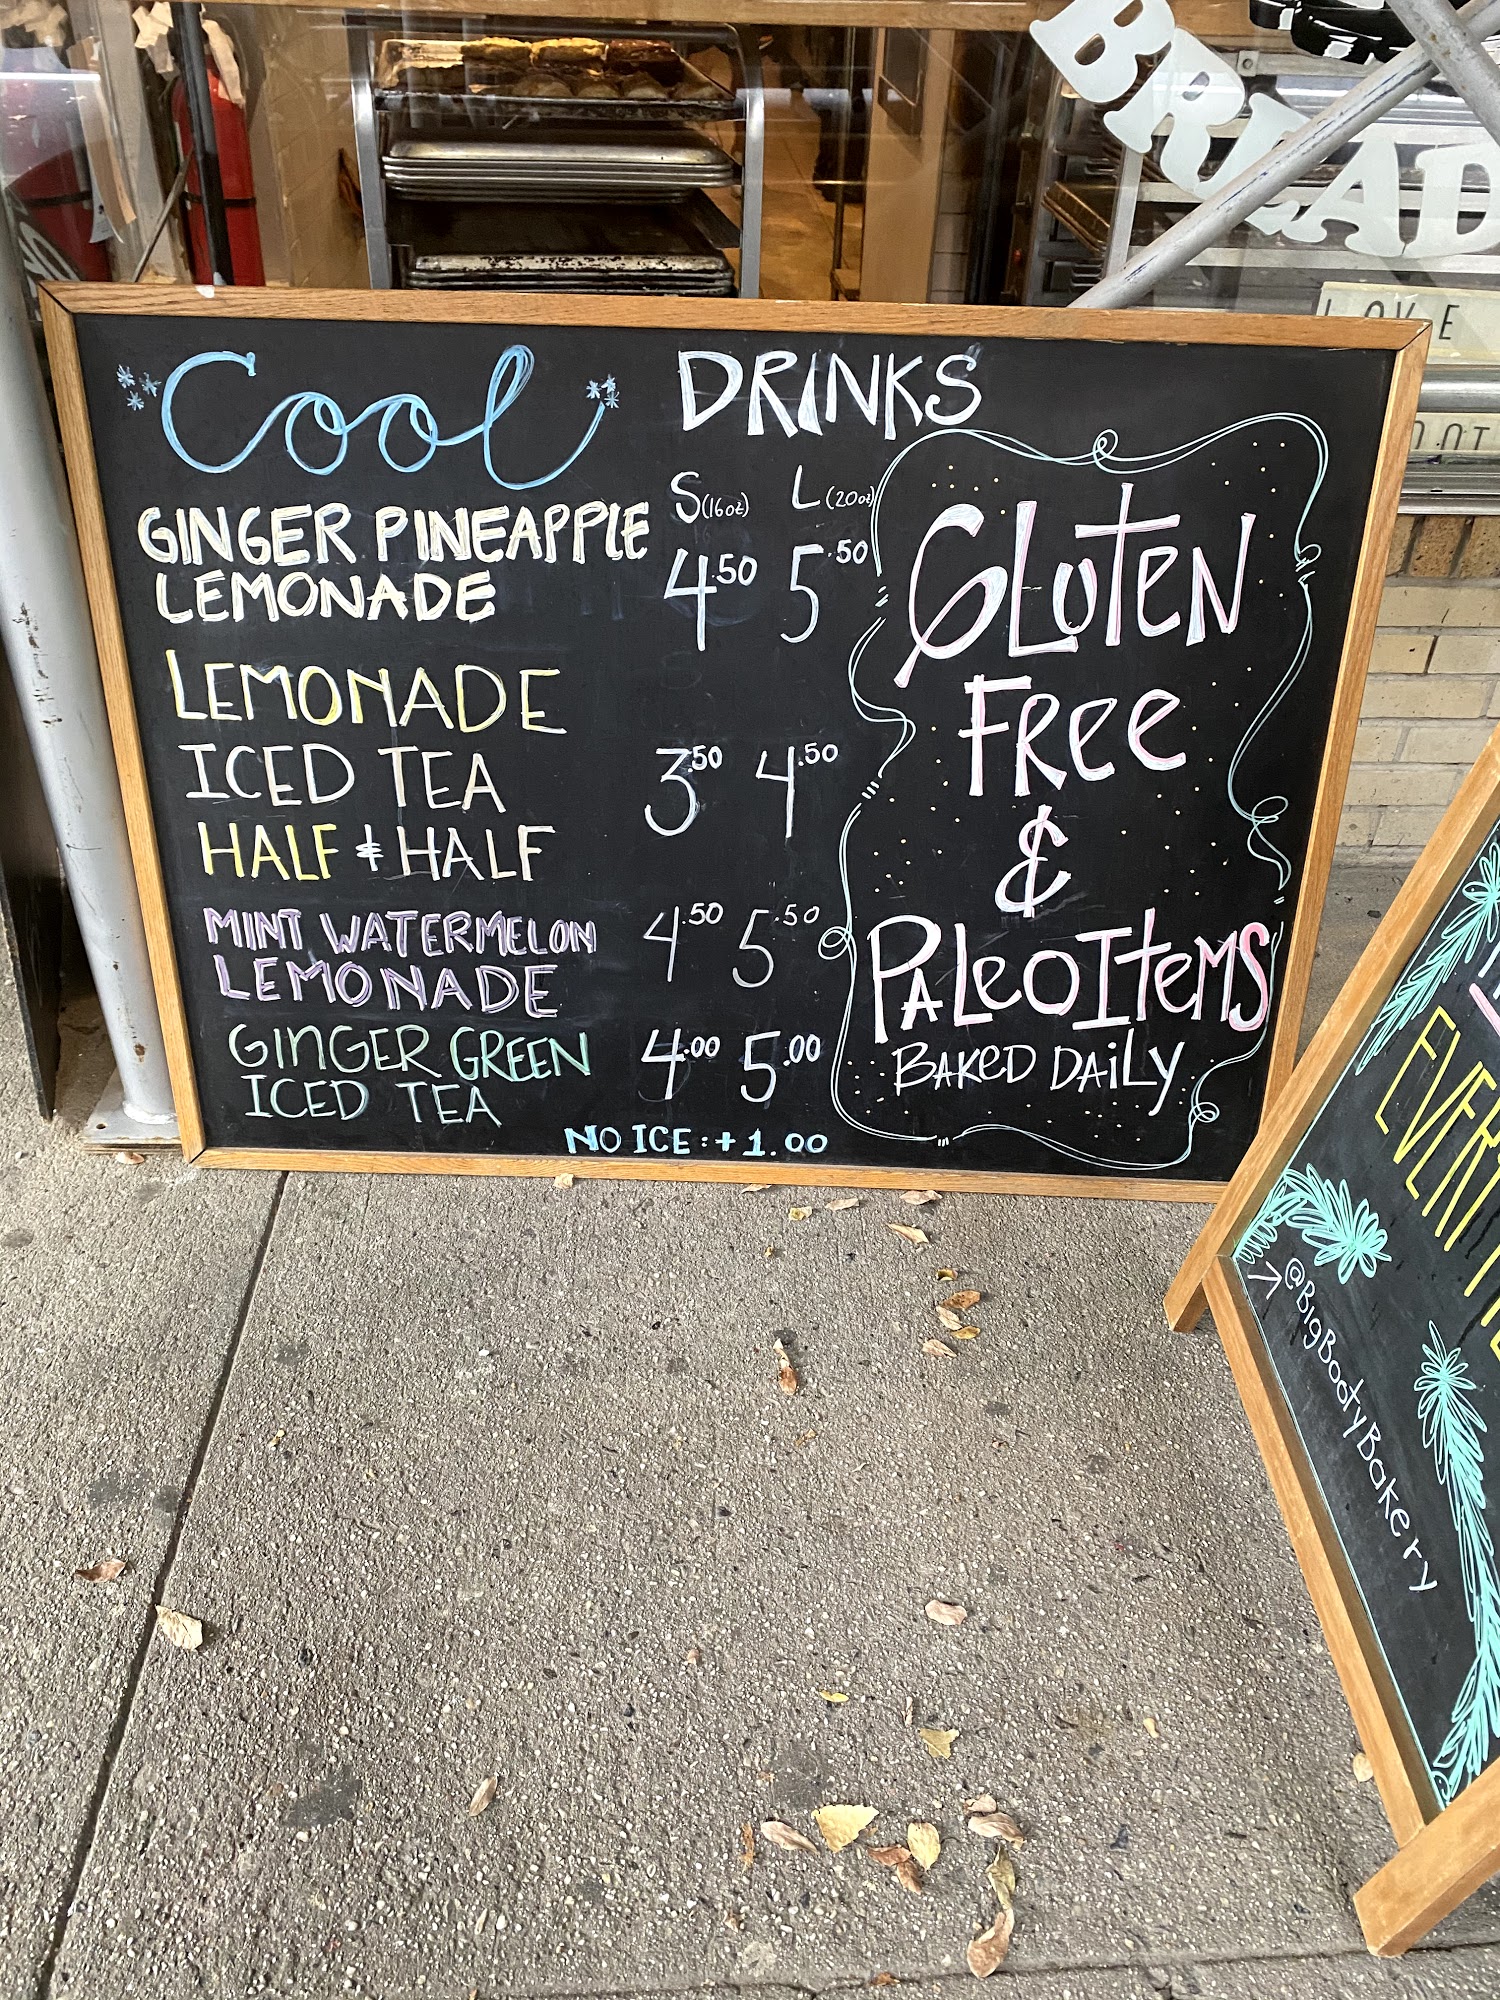 BREAD
LOVE
Cool DRINKS
S (16oz) L (20oz)
GINGER PINEAPPLE
LEMONADE 4.50 5.50
LEMONADE
ICED TEA 3.50 4.50
HALF & HALF
MINT WATERMELON 4.50 5.50
LEMONADE
GINGER GREEN 4.00 5.00
ICED TEA
NO ICE: + 1.00
GLUTEN
FREE
&
PALEO ITEMS
BAKED DAILY
@BigBootyBakery